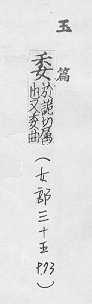 玉篇
委於詭切属
也又委曲
(女部三十五 P.73)